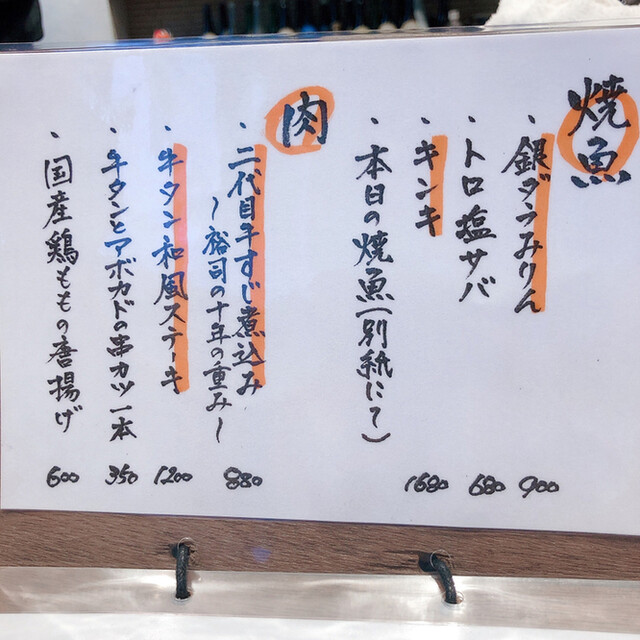 焼魚
・銀ダラみりん 900
・トロ塩サバ 680
・キンキ 1680
・本日の焼魚(別紙にて)
肉
・二代目牛すじ煮込み 880
〜裕司の十年の重み〜
・牛タン和風ステーキ 1200
・牛タンとアボカドの串カツ一本 350
・国産鶏ももの唐揚げ 600